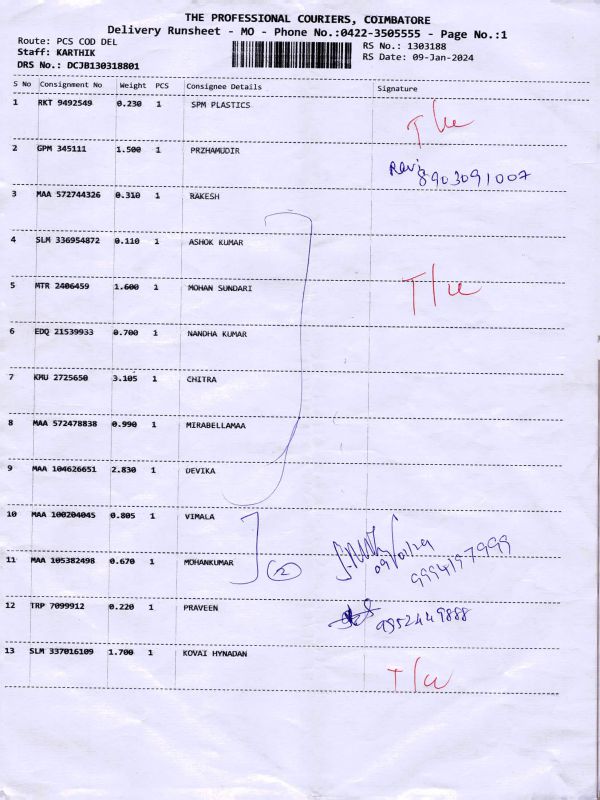 THE PROFESSIONAL COURIERS, COIMBATORE
Delivery Runsheet - MO - Phone No.:0422-3505555 - Page No.:1
Route: PCS COD DEL
RS No.: 1303188
Staff: KARTHIK
RS Date: 09-Jan-2024
DRS No.: DCJB130318801
S No Consignment No Weight PCS Consignee Details Signature
1 RKT 9492549 0.230 1 SPM PLASTICS
2 GPM 345111 1.500 1 PRZHAMUDIR
8903091007
3 MAA 572744326 0.310 1 RAKESH
4 SLM 336954872 0.110 1 ASHOK KUMAR
5 MTR 2406459 1.600 1 MOHAN SUNDARI
6 EDQ 21539933 0.700 1 NANDHA KUMAR
7 KMU 2725650 3.105 1 CHITRA
8 MAA 572478838 0.990 1 MIRABELLAMAA
9 MAA 104626651 2.830 1 DEVIKA
10 MAA 100204045 0.805 1 VIMALA
11 MAA 105382498 0.670 1 MOHANKUMAR 2 9994197999
12 TRP 7099912 0.220 1 PRAVEEN 9952449888
13 SLM 337016109 1.700 1 KOVAI HYNADAN